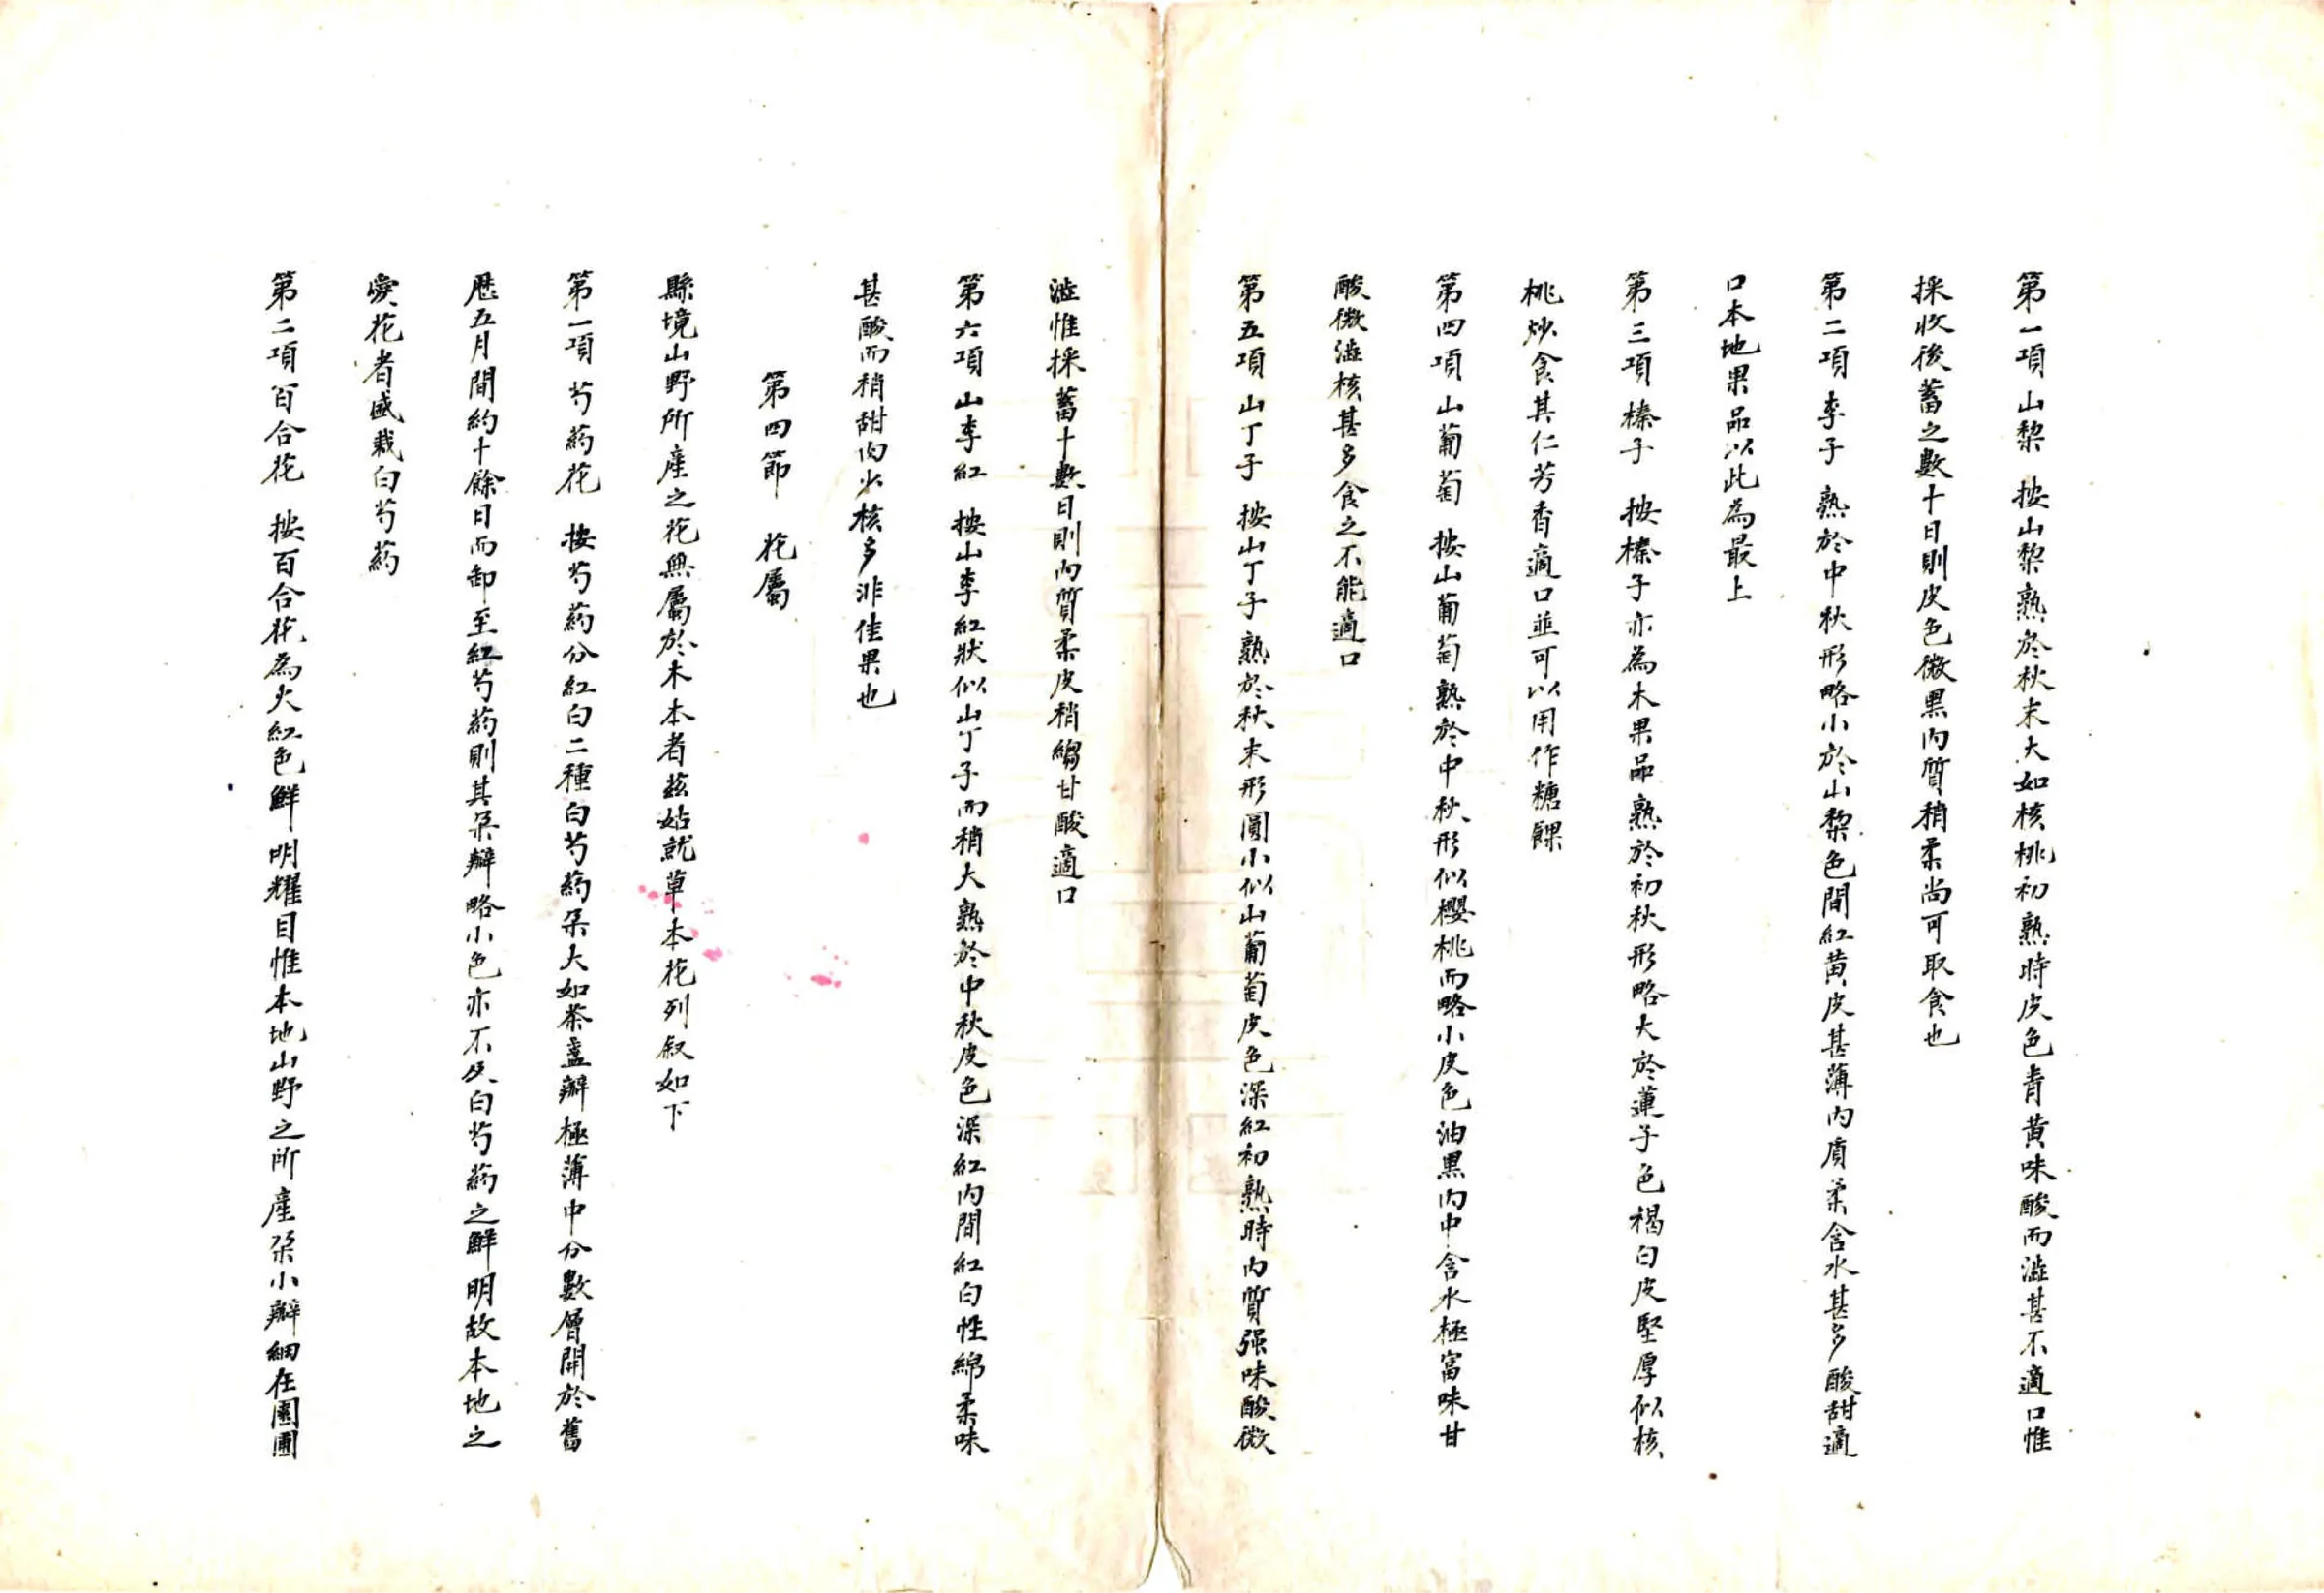 第一項山棃 按山棃熟於秋末大如核桃初熟時皮色青黃味酸而澁甚不適口惟
採收後蓄之數十日則皮色微黑內質稍柔尚可取食也
第二項李子 熟於中秋形略小於山棃色間紅黃皮甚薄內質柔含水甚多酸甜適
口本地果品以此為最上
第三項榛子 按榛子亦為木果品熟於初秋形略大於蓮子色褐白皮堅厚似核
桃炒食其仁芳香適口並可以用作糖餜
第四項山葡萄 按山葡萄熟於中秋形似櫻桃而略小皮色油黑內中含水極富味甘
酸微澁核甚多食之不能適口
第五項山丁子 按山丁子熟於秋末形圓小似山葡萄皮色深紅初熟時內質强味酸微
澁惟採蓄十數日則內質柔皮稍縐甘酸適口
第六項山李紅 按山李紅狀似山丁子而稍大熟於中秋皮色深紅內間紅白性綿柔味
甚酸而稍甜肉少核多非佳果也
第四節 花屬
縣境山野所產之花無屬於木本者茲姑就草本花列叙如下
第一項芍葯花 按芍葯分紅白二種白芍葯朵大如茶盞瓣極薄中分數層開於舊
歷五月間約十餘日而卸至紅芍葯則其朵瓣略小色亦不及白芍葯之鮮明故本地之
愛花者盛栽白芍葯
第二項百合花 按百合花為火紅色鮮明耀目惟本地山野之所產朵小瓣細在園圃